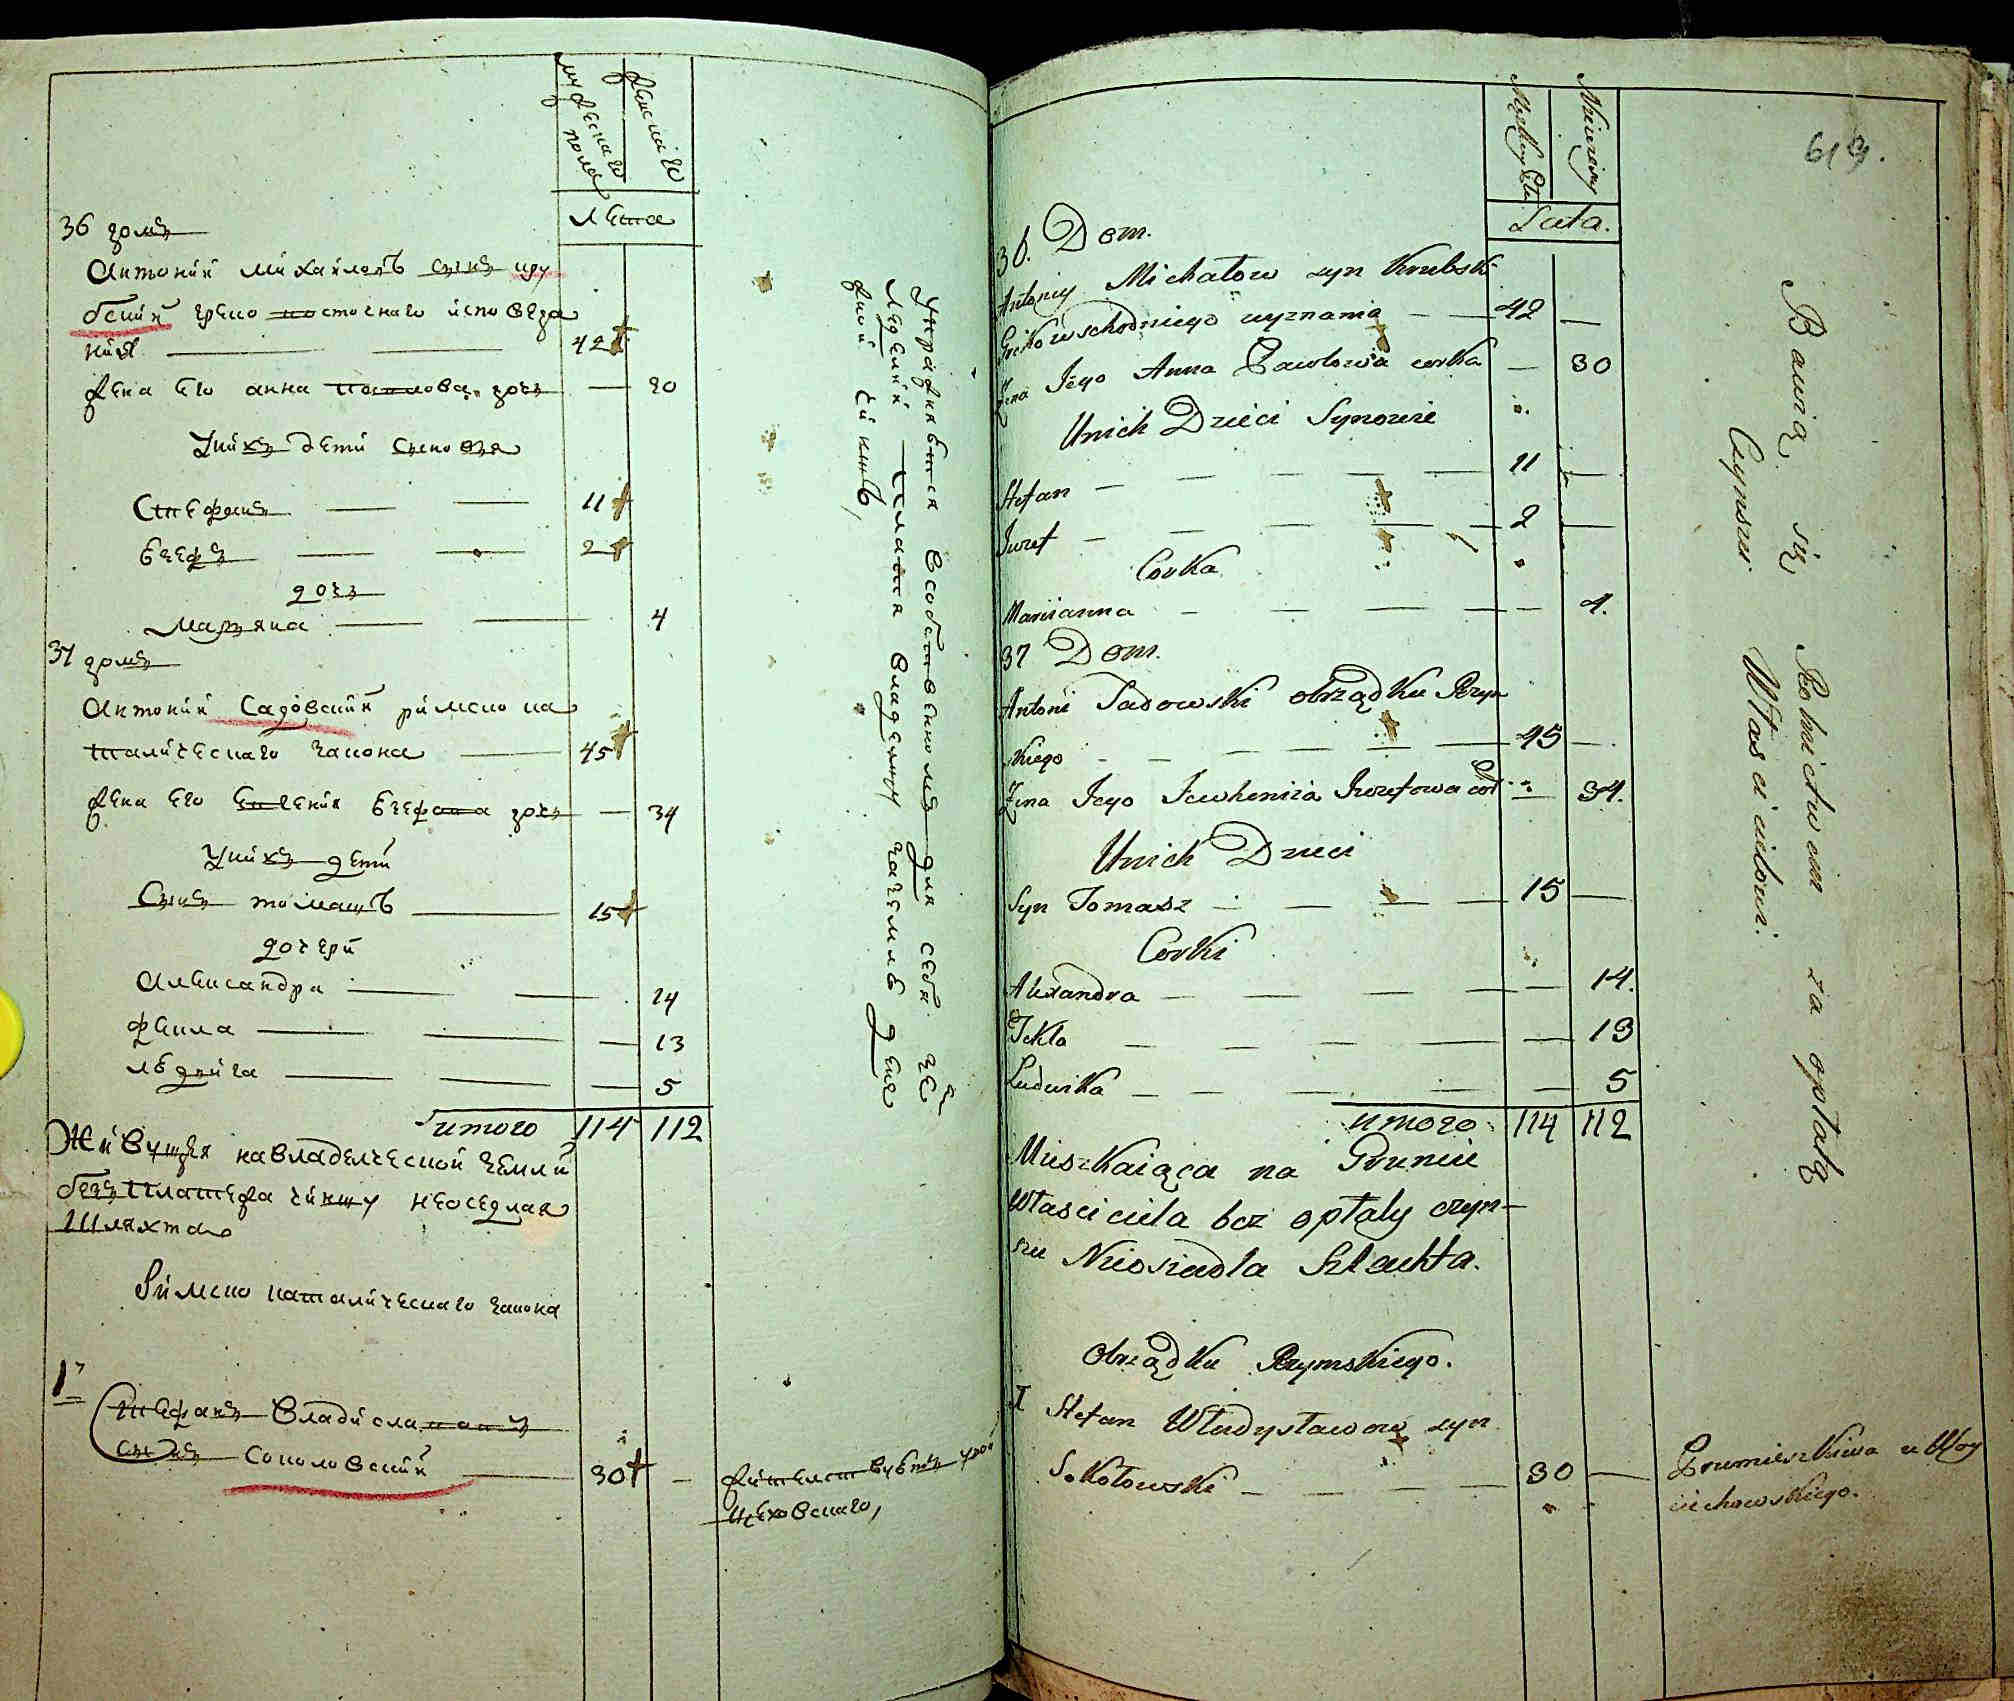 мужескаго пола
женскаго
лета
36 домъ
Антоний Михайловъ сынъ Кру
бский греко восточнаго исповеда
ния 42
жена его анна павлова дочь — 20
У нихъ дети сыновья
Стефанъ 11
Езефъ 2
дочь
Марьяна 4
37 домъ
Антоний Садовский римско ка
толическаго закона 45
жена его Евгения Езефава дочь — 34
У нихъ дети
Сынъ томашъ 15
дочери
Александра 14
фекла — 13
людвига — 5
итого 114 112
Живущая на владелческой земли
безъ платежа чиншу неоседлая
Шляхта
Римско католическаго закона
1
Стефанъ Владиславовъ
сынъ Соколовский 30 —
619.
Męzkiey Płci
Lata.
36. Dom.
Antoniy Michałow syn Krubski
Greko wschodniego wyznania — 42 —
Żena Jego Anna Pawłowa corka — 30
Unich Dzieci Synowie
Stefan — 11 —
Juzef — 2 —
Corka
Mariianna — 4.
37 Dom.
Antoni Sadowski obrządku Rzym
skiego — 45 —
Żena Jego Jewhenia Juzefowa cor — 34.
Unich Dzieci
Syn Tomasz — 15 —
Corki
Alexandra — 14.
Tekla — 13
Ludwika — 5
итого 114 112
Mieszkaiąca na Gruncie
Własciciela bez opłaty czyn-
szu Nieosiadła Szlachta.
Obrządku Rzymskiego.
I Stefan Władysławow syn
Sokołowski — 30 —
Bawią się Robnictwem za opłatą
Czynszu Własicielowi.
Pomieszkiwa u Woy
ciechowskiego.